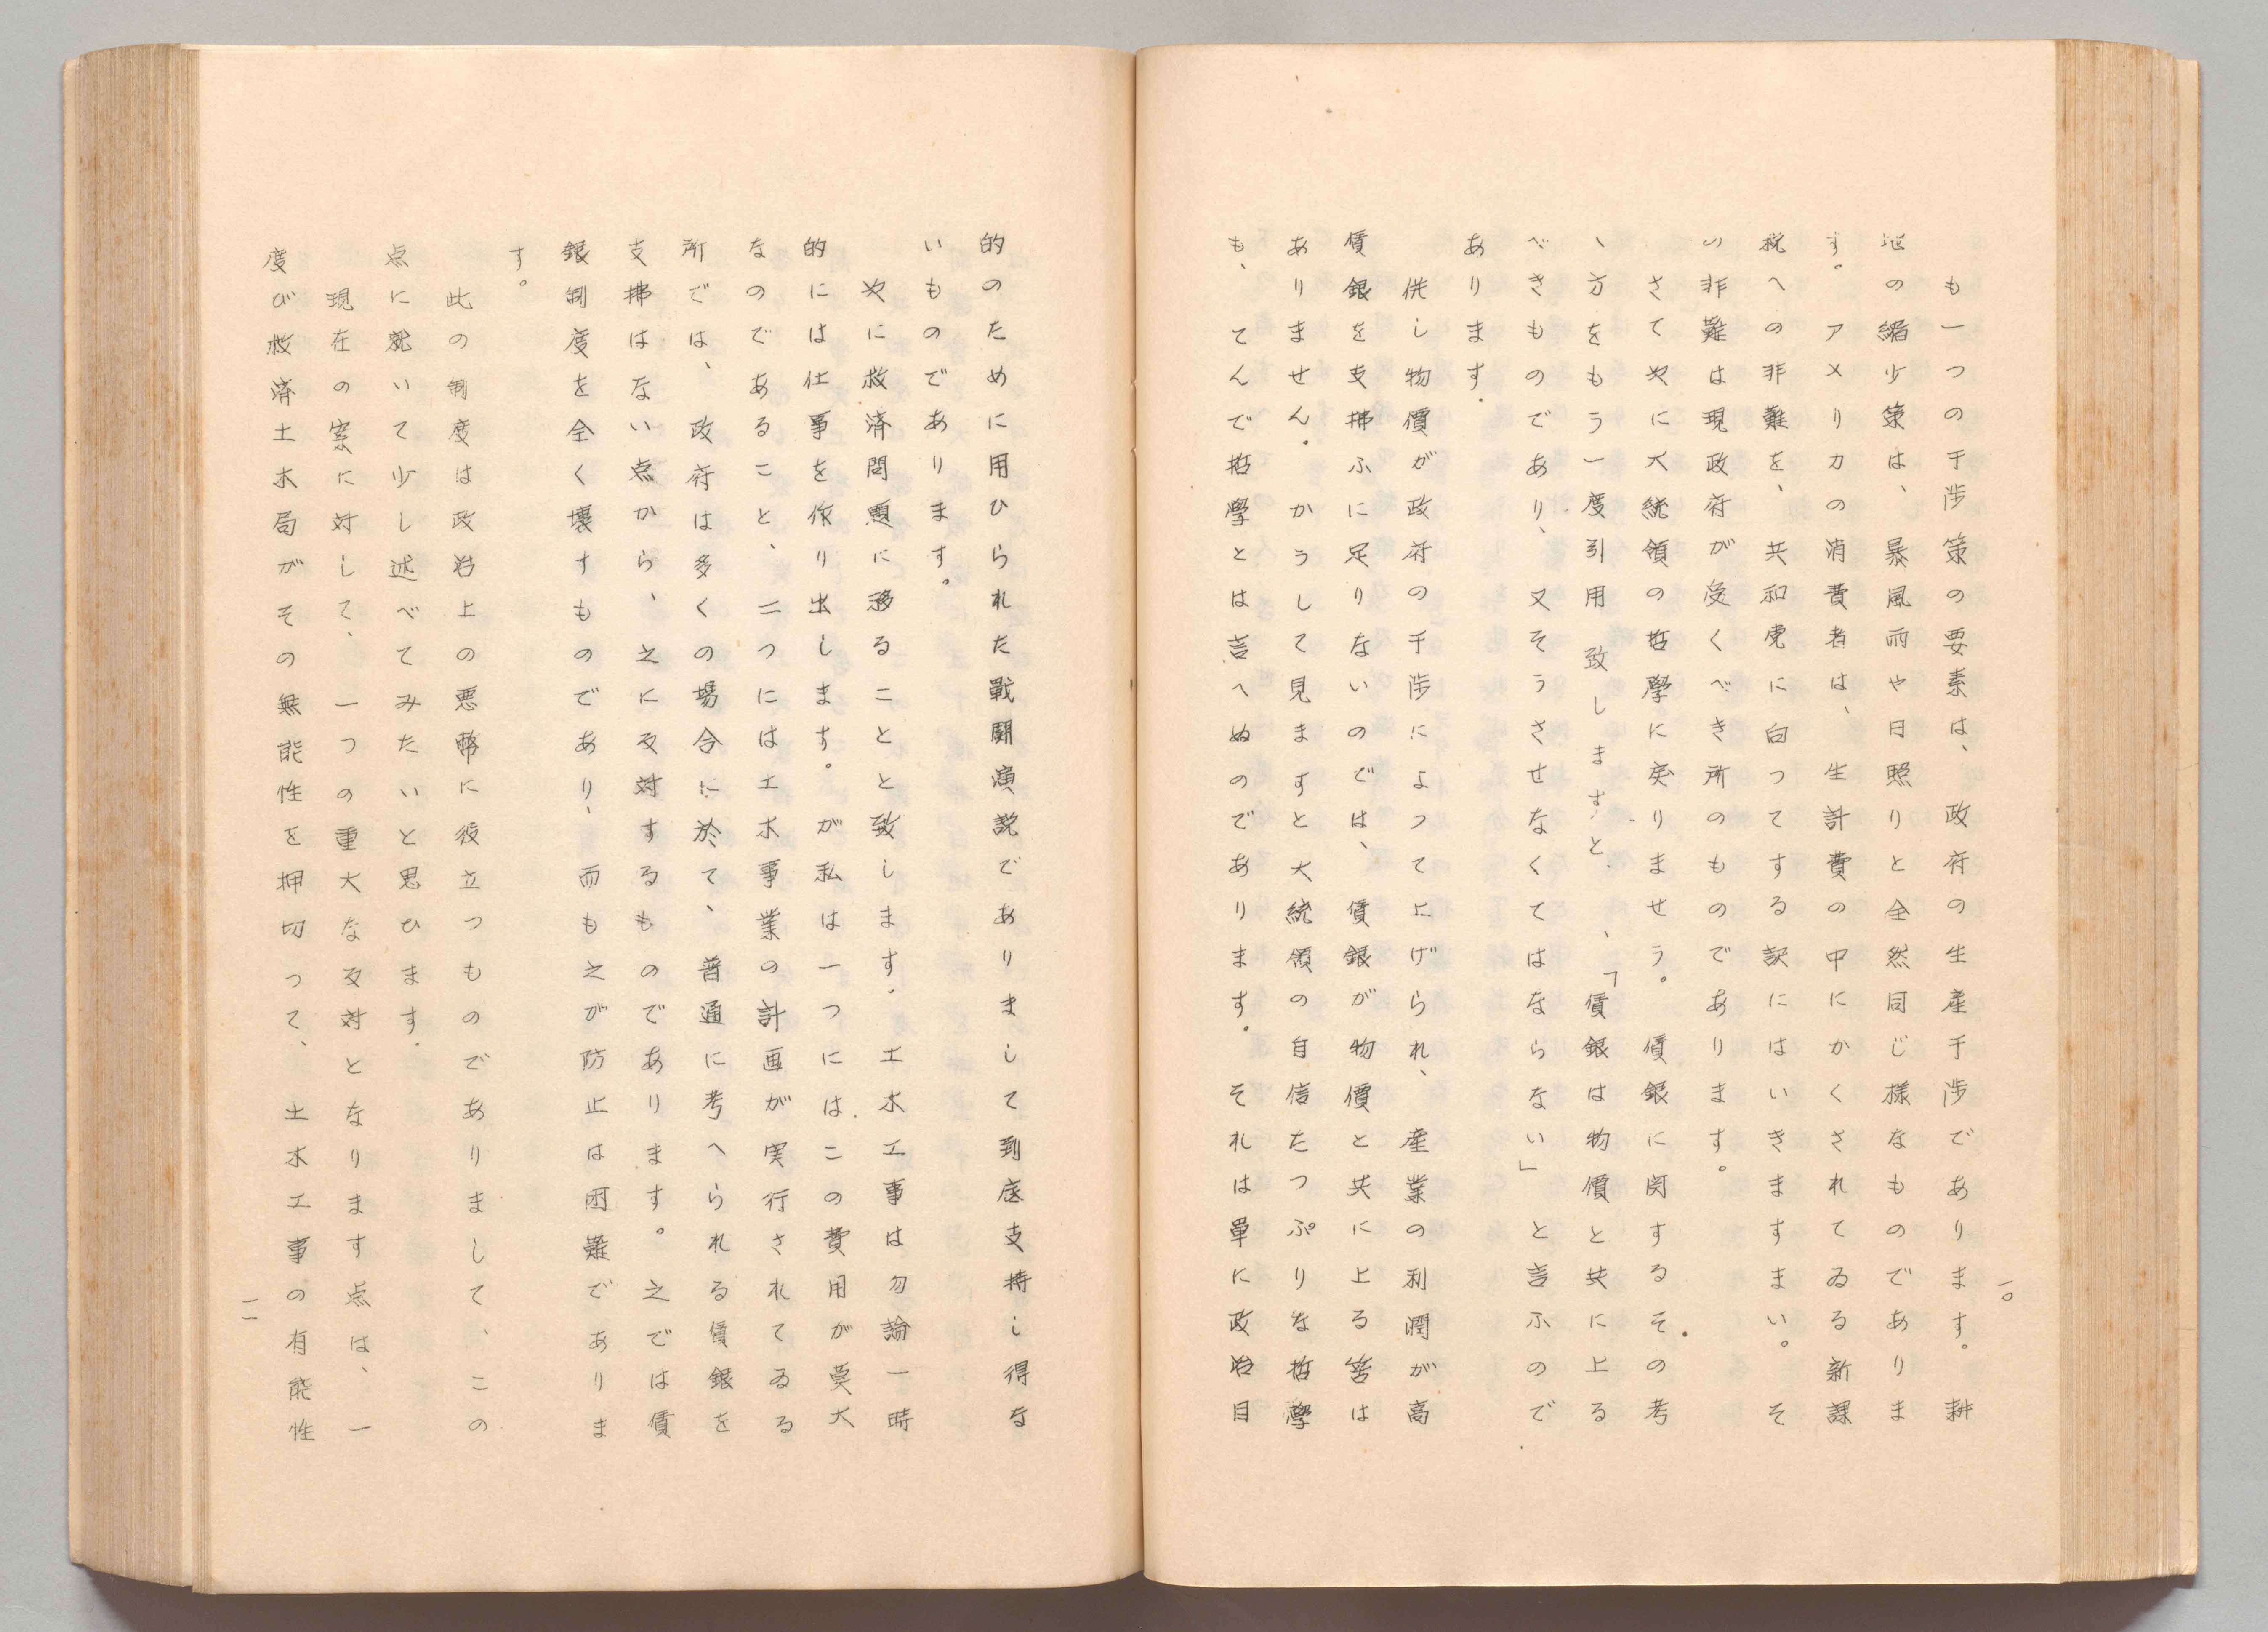 も一つの干渉策の要素は、政府の生産干渉であります。耕
地の縮少策は、暴風雨や日照りと全然同じ様なものでありま
す。アメリカの消費者は、生計費の中にかくされてゐる新課
税への非難を、共和党に向つてする訳にはいきますまい。そ
の非難は現政府が受くべき所のものであります。
さて次に大統領の哲學に戻りませう。賃銀に関するその考
へ方をもう一度引用致しますと、「賃銀は物價と共に上る
べきものであり、又そうさせなくてはならない」と言ふので
あります。
併し物價が政府の干渉によつて上げられ、産業の利潤が高
賃銀を支拂ふに足りないのでは、賃銀が物價と共に上る筈は
ありません。かうして見ますと大統領の自信たつぷりな哲學
も、てんで哲學とは言へぬのであります。それは單に政治目
一〇
的のために用ひられた戰闘演説でありまして到底支持し得な
いものであります。
次に救済問題に移ることと致します。土木工事は勿論一時
的には仕事を作り出します。が私は一つにはこの費用が莫大
なのであること、二つには土木事業の計画が実行されてゐる
所では、政府は多くの場合に於て、普通に考へられる賃銀を
支拂はない点から、之に反対するものであります。之では賃
銀制度を全く壊すものであり、而も之が防止は困難でありま
す。
此の制度は政治上の悪弊に役立つものでありまして、この
点に就いて少し述べてみたいと思ひます。
現在の案に対して、一つの重大な反対となります点は、一
度び救済土木局がその無能性を押切つて、土木工事の有能性
一一